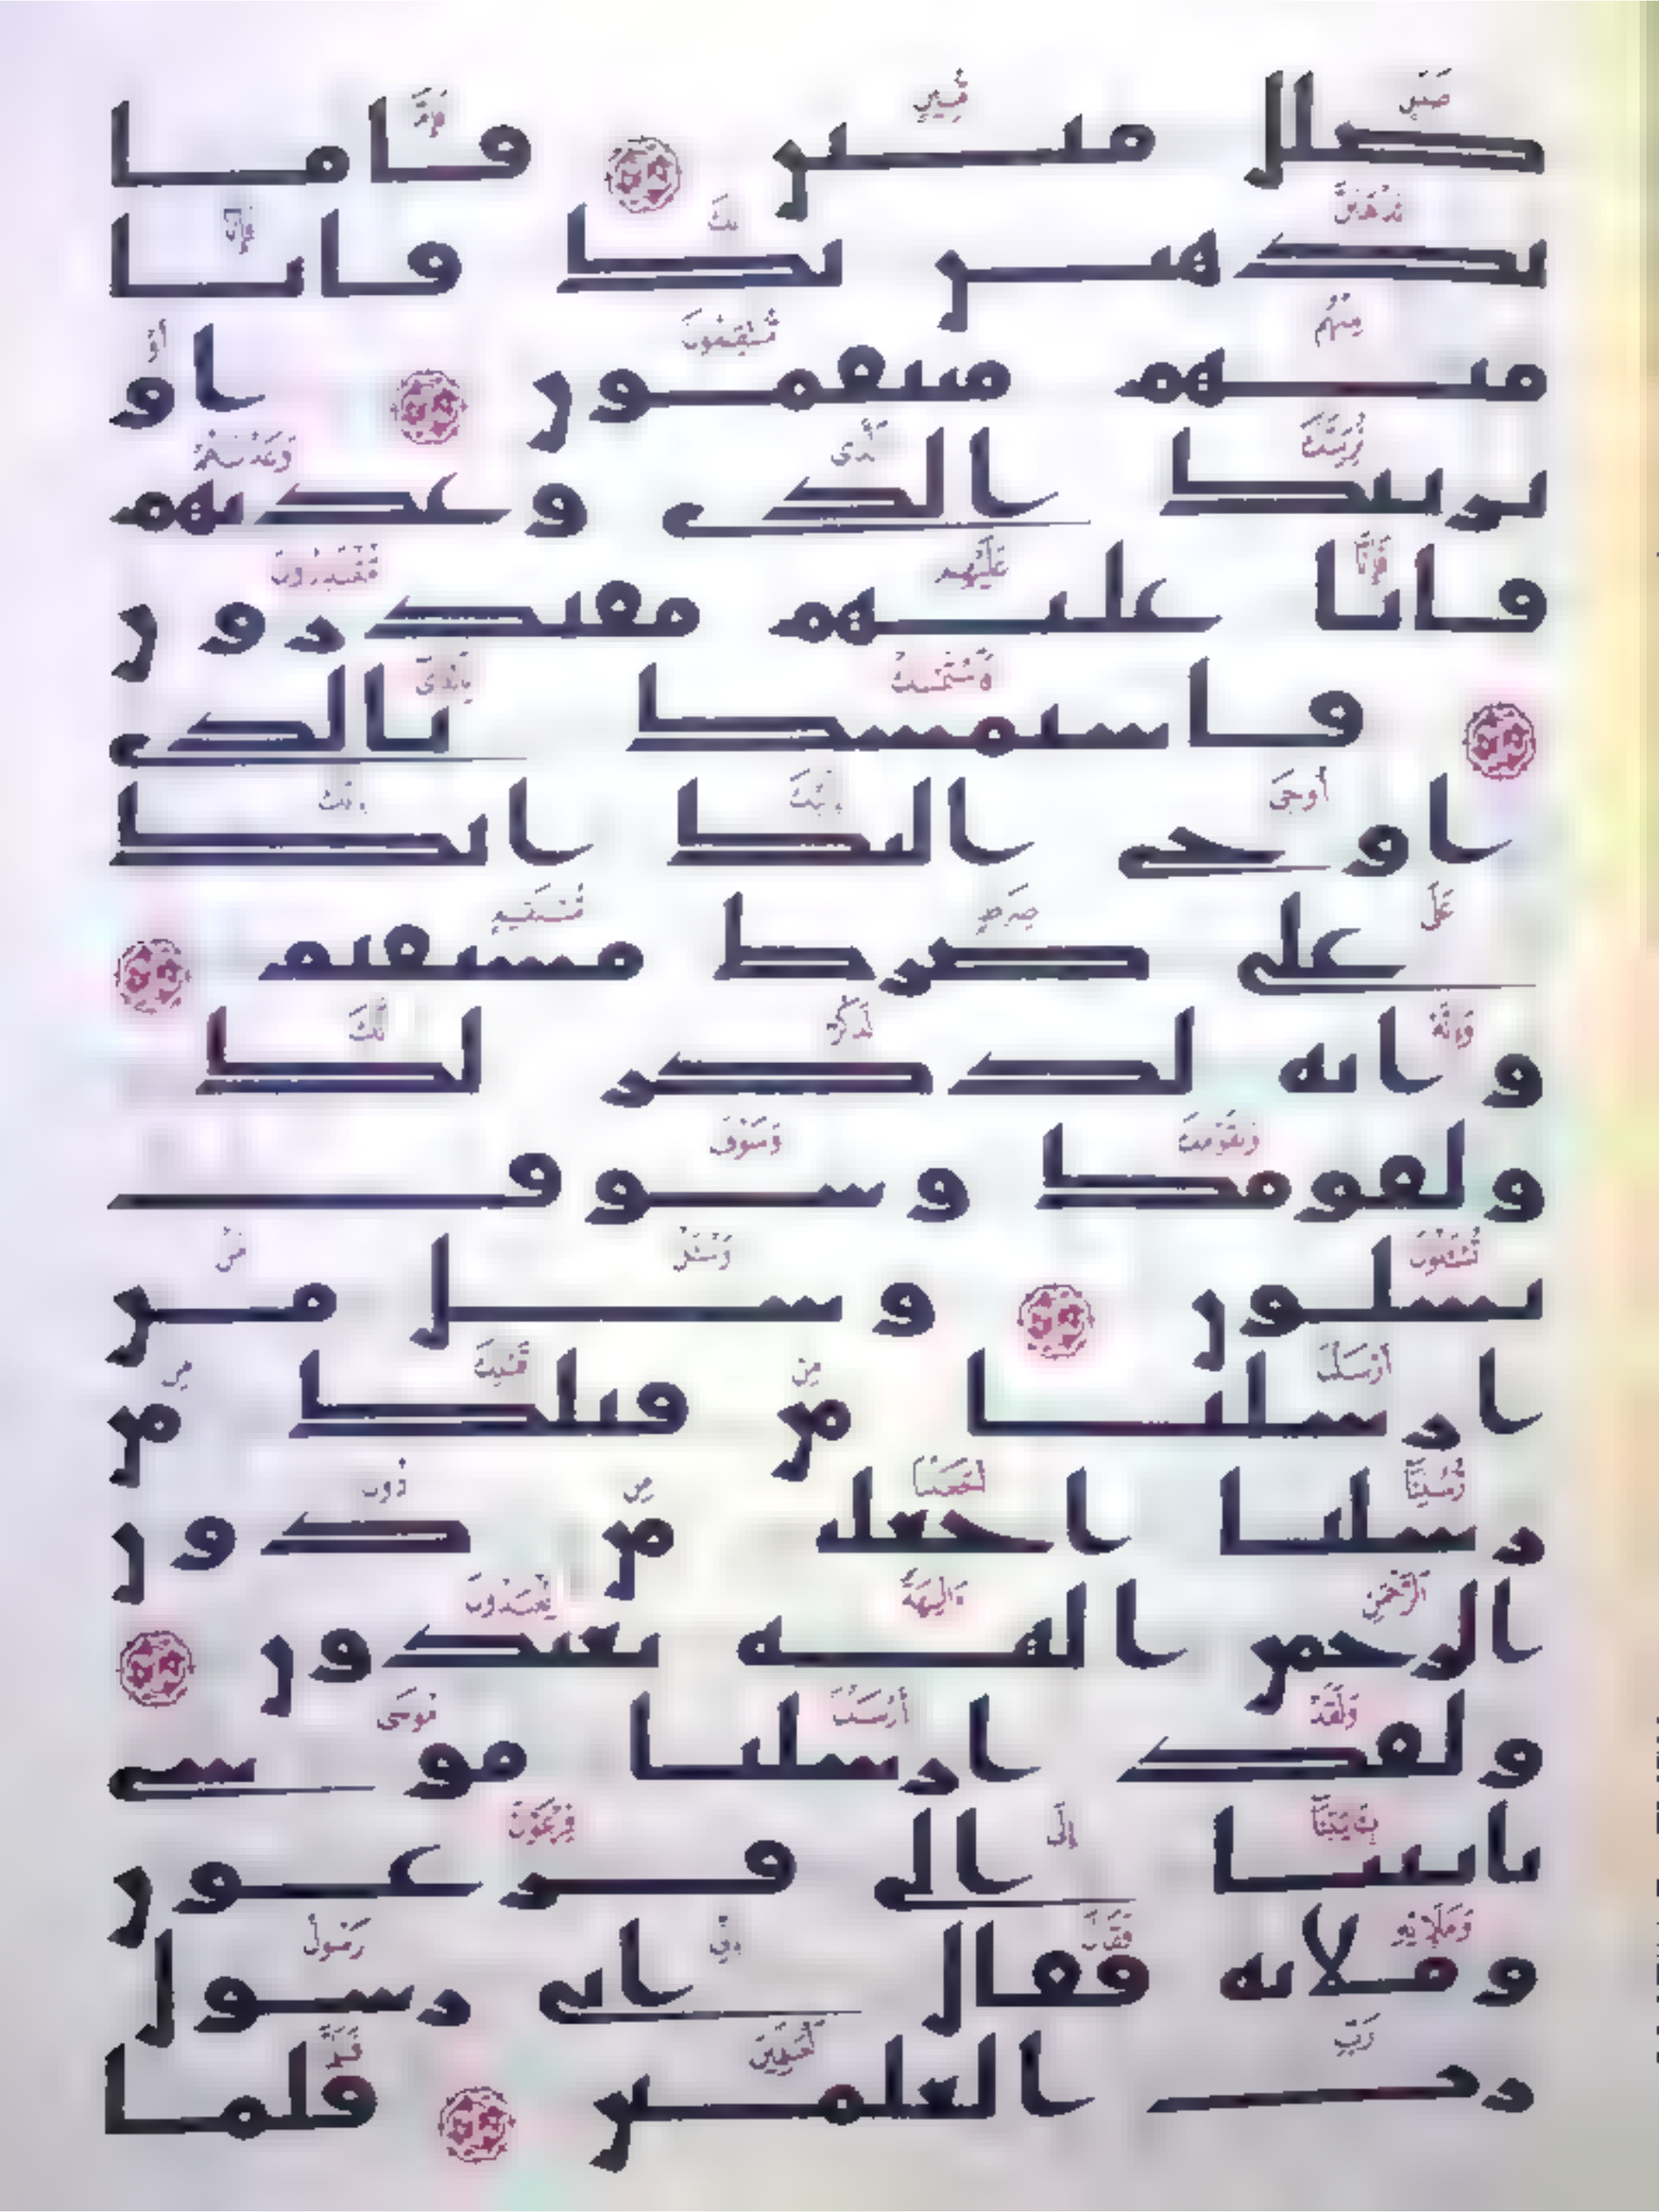 ضلل مبين فاما
نذهبن بك فانا
منهم منتقمون او
نرينك الذي وعدنهم
فانا عليهم مقتدرون
فاستمسك بالذي
اوحي اليك انك
على صرط مستقيم
وانه لذكر لك
ولقومك وسوف
تسلون وسل من
ارسلنا من قبلك من
رسلنا اجعلنا من دون
الرحمن الهه يعبدون
ولقد ارسلنا موسى
بايتنا الى فرعون
وملايه فقال اني رسول
رب العلمين فلما